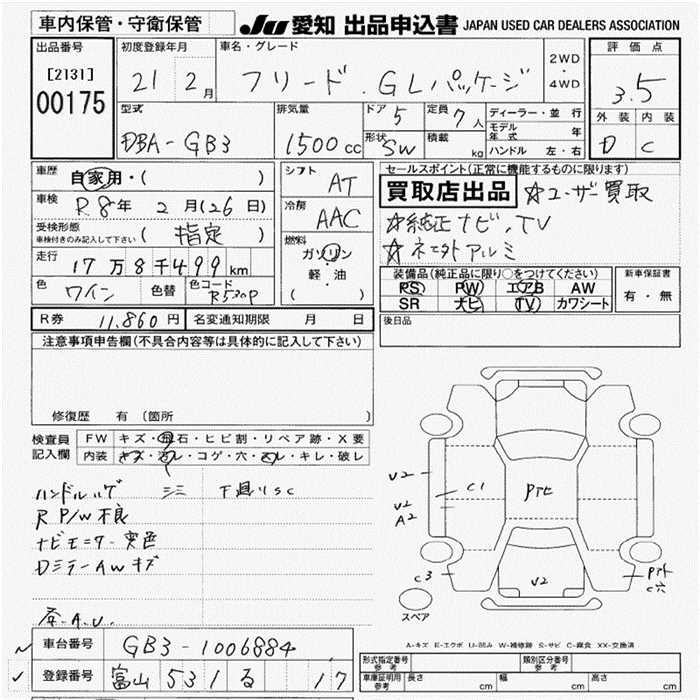 車内保管・守衛保管
JU 愛知 出品申込書 JAPAN USED CAR DEALERS ASSOCIATION
出品番号 [2131] 00175
初度登録年月 21 2月
車名・グレード フリード . GLパッケージ
2WD・4WD
評価点 3.5
外装 内装
D C
型式 DBA-GB3
排気量 1500cc
ドア 5
定員 7人
形状 SW
積載 kg
ディーラー・並行
モデル年式 年
ハンドル 左・右
車歴 自家用・( )
車検 R8年 2月(26日)
受検形態 車検付きのみ記入して下さい (指定)
走行 17万8千499km
色 ワイン 色替 色コード R530P
シフト AT
冷房 AAC
燃料 ガソリン・軽・油 ( )
セールスポイント(正常に機能するものに限ります)
買取店出品 ☆ユーザー買取
☆純正ナビ、TV
☆ネエトアルミ
装備品(純正品に限り○をつけてください)
PS PW エアB AW
SR ナビ TV カワシート
新車保証書 有・無
R券 11,860円 名変通知期限 月 日
後日品
注意事項申告欄(不具合内容等は具体的に記入して下さい)
修復歴 有 (箇所
検査員記入欄
FW キズ・飛石・ヒビ割・リペア跡・X要
内装 キズ・汚レ・コゲ・穴・スレ・キレ・破レ
ハンドルハゲ シミ 下廻りSC
R P/W不良
ナビモニター変色
DミラーAWキズ
A.U.
車台番号 GB3-1006884
登録番号 富山 531 る 17
U2
C1
U2
A2
Pトビ
C3
U2
Pトビ
C穴
スペア
A-キズ E-エクボ U-凹み W-補修跡 S-サビ C-腐食 XX-交換済
形式指定番号 参考 類別区分番号 参考
車庫証明用 参考 長さ cm 幅 cm 高さ cm